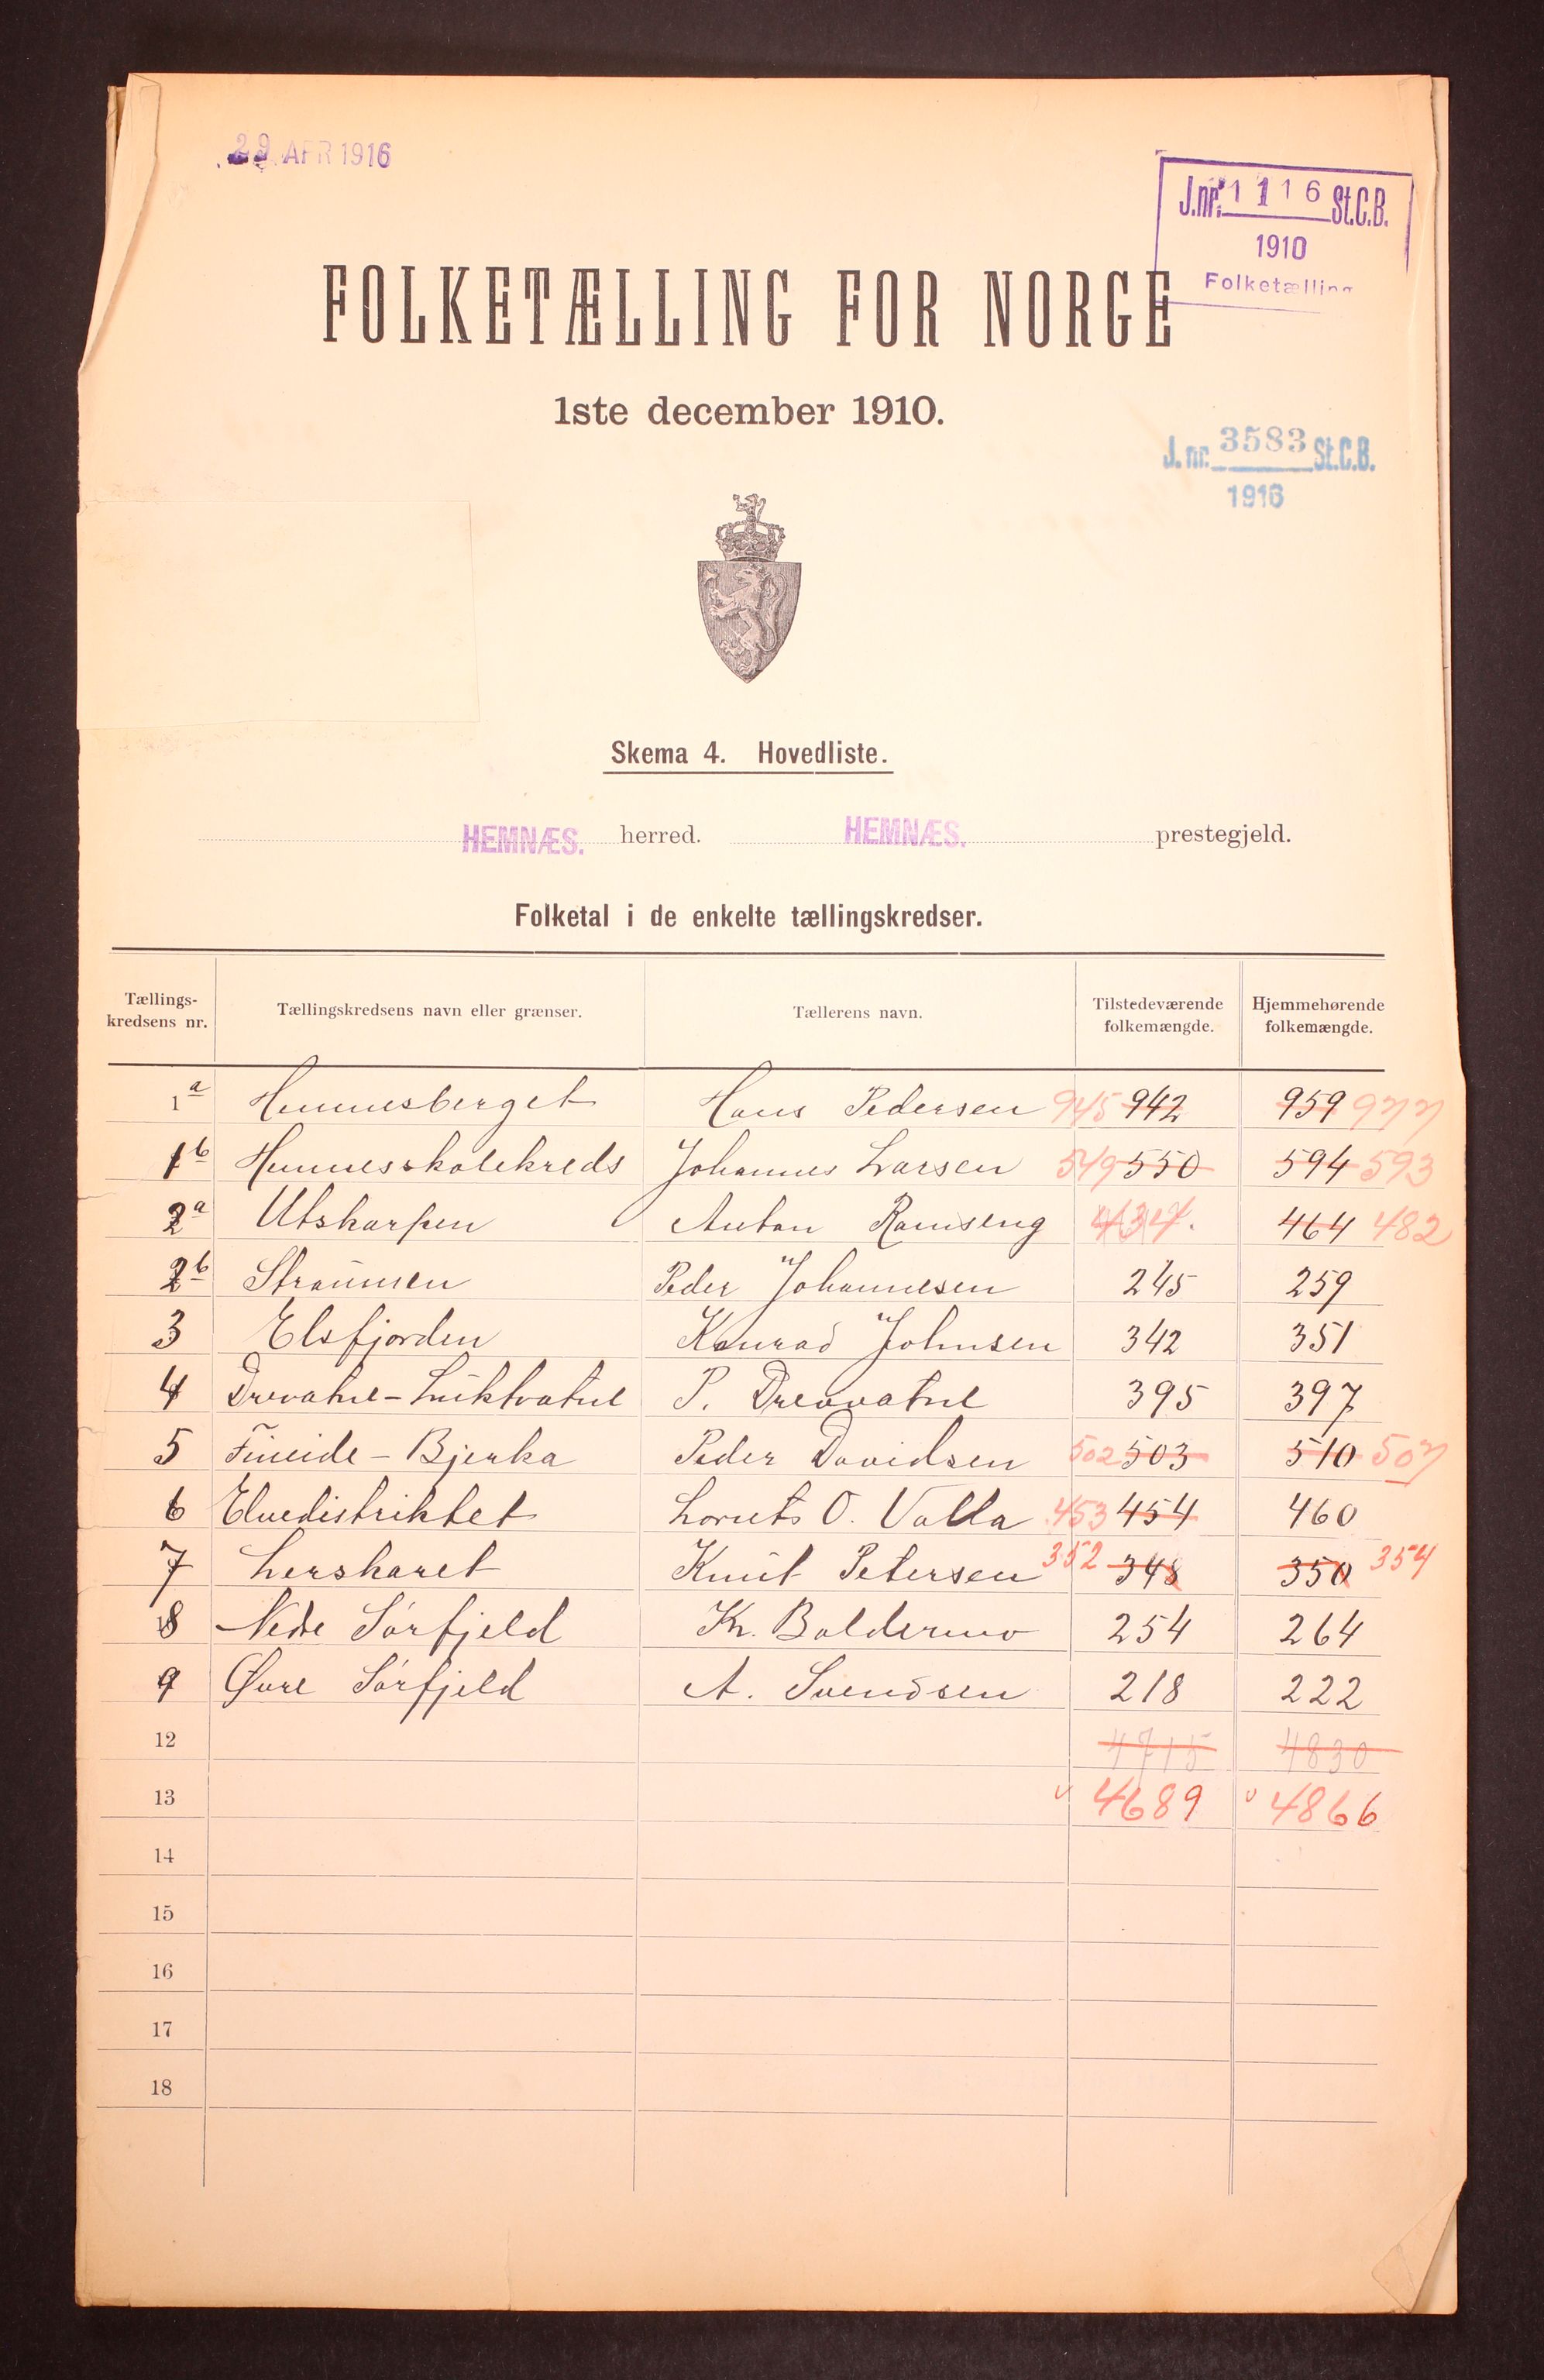 29 APR 1916
J.nr. 1116 St.C.B.
1910
Folketælling
FOLKETÆLLING FOR NORGE
1ste december 1910.
J. nr. 3583 St.C.B.
1916
Skema 4. Hovedliste.
HEMNÆS. herred. HEMNÆS. prestegjeld.
Folketal i de enkelte tællingskredser.
Tællings-kredsens nr. Tællingskredsens navn eller grænser. Tællerens navn. Tilstedeværende folkemængde. Hjemmehørende folkemængde.
1a Hemnesberget Hans Pedersen 945 942 959 977
1b Hemnesskolekreds Johannes Larsen 549 550 594 593
2a Utskarpen Anton Ramseng 434. 464 482
2b Straumen Peder Johannesen 245 259
3 Elsfjorden Konrad Johnsen 342 351
4 Drevatne-Luktvatne P. Drevvatne 395 397
5 Fineide - Bjerka Peder Davidsen 502 503 510 507
6 Elvedistriktet Lornts O. Valla 453 454 460
7 Lerskaret Knut Petersen 352 348 350 354
8 Nedre Sørfjeld Kr. Baldermo 254 264
9 Øvre Sørfjeld A. Svendsen 218 222
12 4715 4830
13 4689 4866
14
15
16
17
18